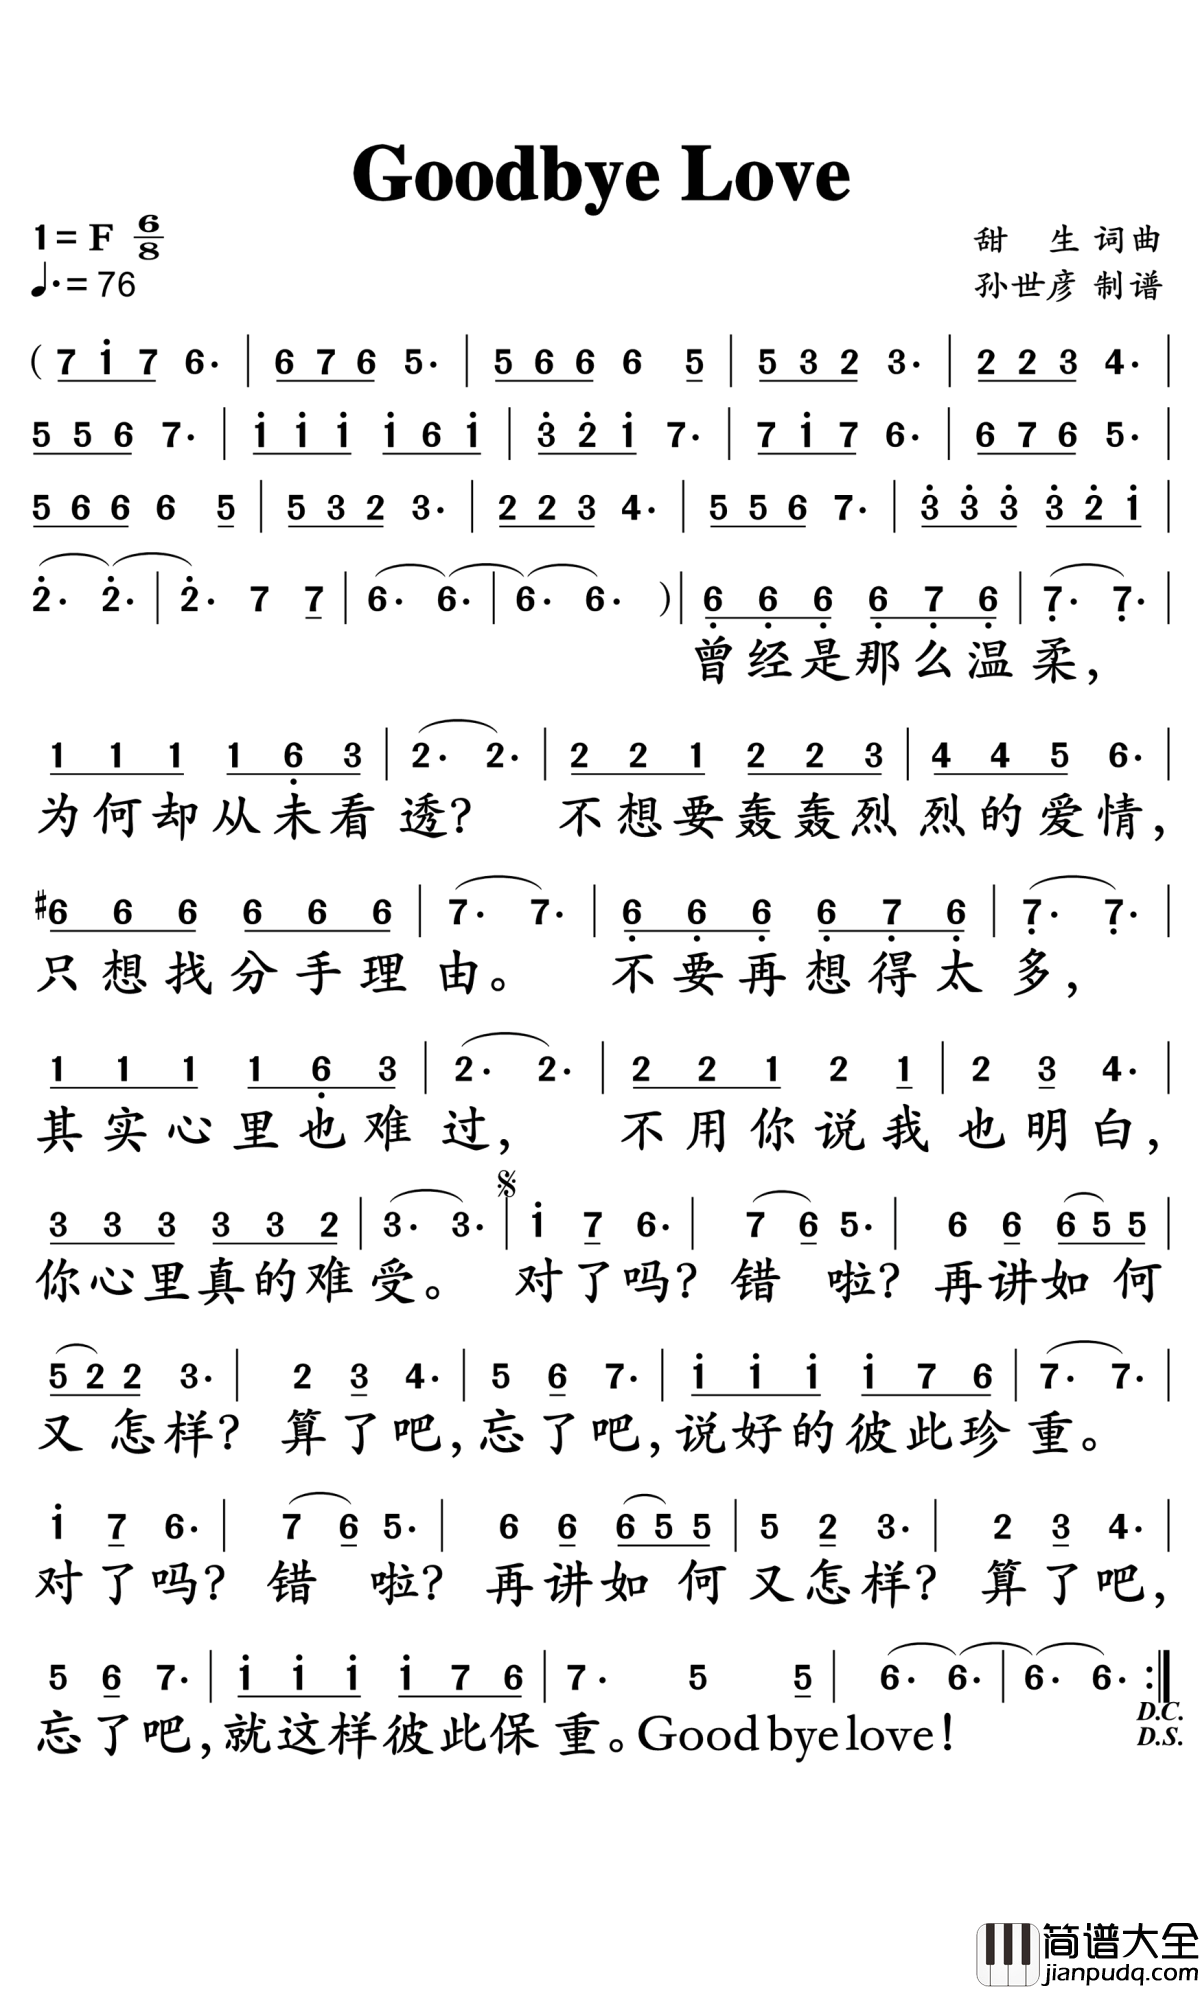 Goodbye Love
1= F 6/8
甜 生 词曲
♩.= 76
孙世彦 制谱
( 7 i 7 6. | 6 7 6 5. | 5 6 6 6 5 | 5 3 2 3. | 2 2 3 4. |
5 5 6 7. | i i i i 6 i | 3̇ 2̇ i 7. | 7 i 7 6. | 6 7 6 5. |
5 6 6 6 5 | 5 3 2 3. | 2 2 3 4. | 5 5 6 7. | 3̇ 3̇ 3̇ 3̇ 2̇ i |
2̇. 2̇. | 2̇. 7 7 | 6. 6. | 6. 6. ) | 6̣ 6̣ 6̣ 6̣ 7̣ 6̣ | 7̣. 7̣. |
曾经是那么温柔,
1 1 1 1 6̣ 3 | 2. 2. | 2 2 1 2 2 3 | 4 4 5 6. |
为何却从未看透? 不想要轰轰烈烈的爱情,
#6 6 6 6 6 6 | 7. 7. | 6̣ 6̣ 6̣ 6̣ 7̣ 6̣ | 7̣. 7̣. |
只想找分手理由。 不要再想得太多,
1 1 1 1 6̣ 3 | 2. 2. | 2 2 1 2 1 | 2 3 4. |
其实心里也难过, 不用你说我也明白,
3 3 3 3 3 2 | 3. 3. | i 7 6. | 7 6 5. | 6 6 6 5 5 |
你心里真的难受。 对了吗? 错 啦? 再讲如何
5 2 2 3. | 2 3 4. | 5 6 7. | i i i i 7 6 | 7. 7. |
又 怎样? 算了吧, 忘了吧, 说好的彼此珍重。
i 7 6. | 7 6 5. | 6 6 6 5 5 | 5 2 3. | 2 3 4. |
对了吗? 错 啦? 再讲如何又怎样? 算了吧,
5 6 7. | i i i i 7 6 | 7. 5 5 | 6. 6. | 6. 6. :|
D.C.
忘了吧, 就这样彼此保重。Good bye love!
D.S.
简谱大全
jianpudq.com